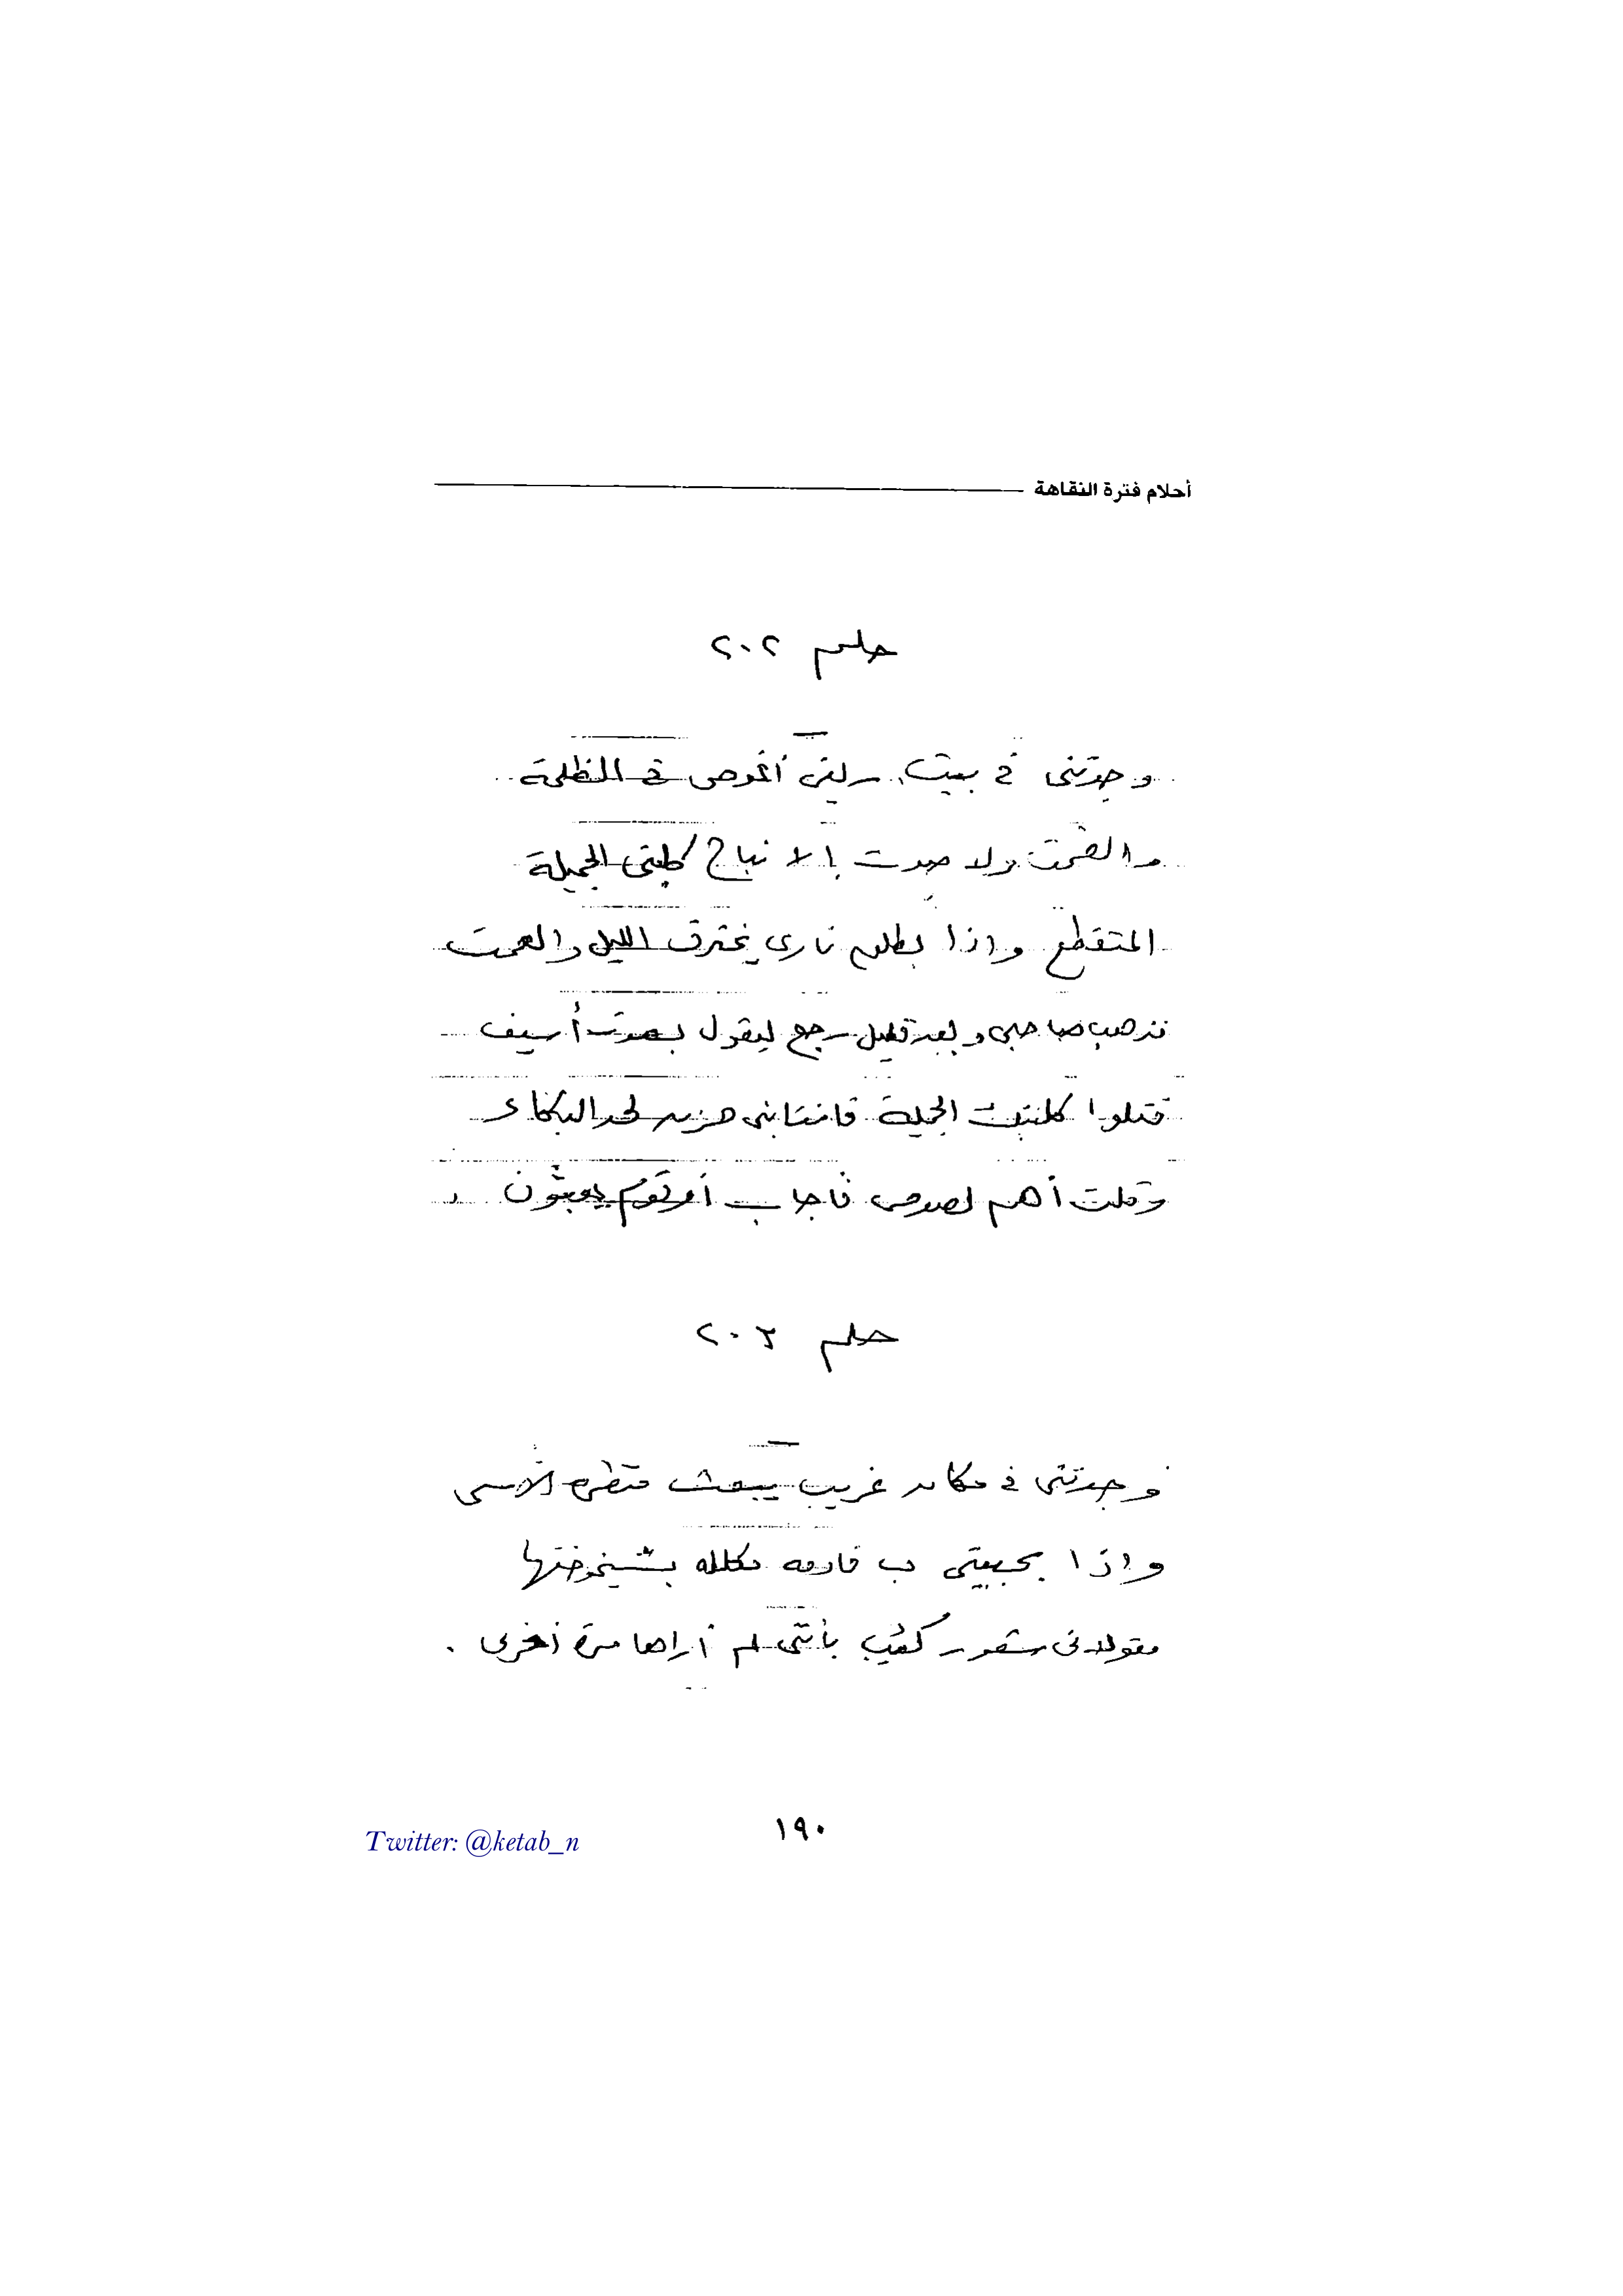 أحلام فترة النقاهة
حلم ٢٠٢
وجدتنى فى بيت ريفى أغوص فى الظلمة
والصمت ولا صوت إلا نباح كلبتى الجميلة
المتقطع واذا بطلق نارى يخترق الليل والصمت
فذهب صاحبى وبعد قليل رجع ليقول بصوت أسيف
قتلوا كلبتك الجميلة فانتابنى حزن لحد البكاء
وقلت أهم لصوص فأجاب أو قوم يعبثون
حلم ٢٠٣
وجدتنى فى مكان غريب يبعث منظره الأسى
واذا بحبيبتى ب قادمه مكلله بشيخوختها
شعور كئيب بأننى لم أراها مرة أخرى .
١٩٠
Twitter: @ketab_n